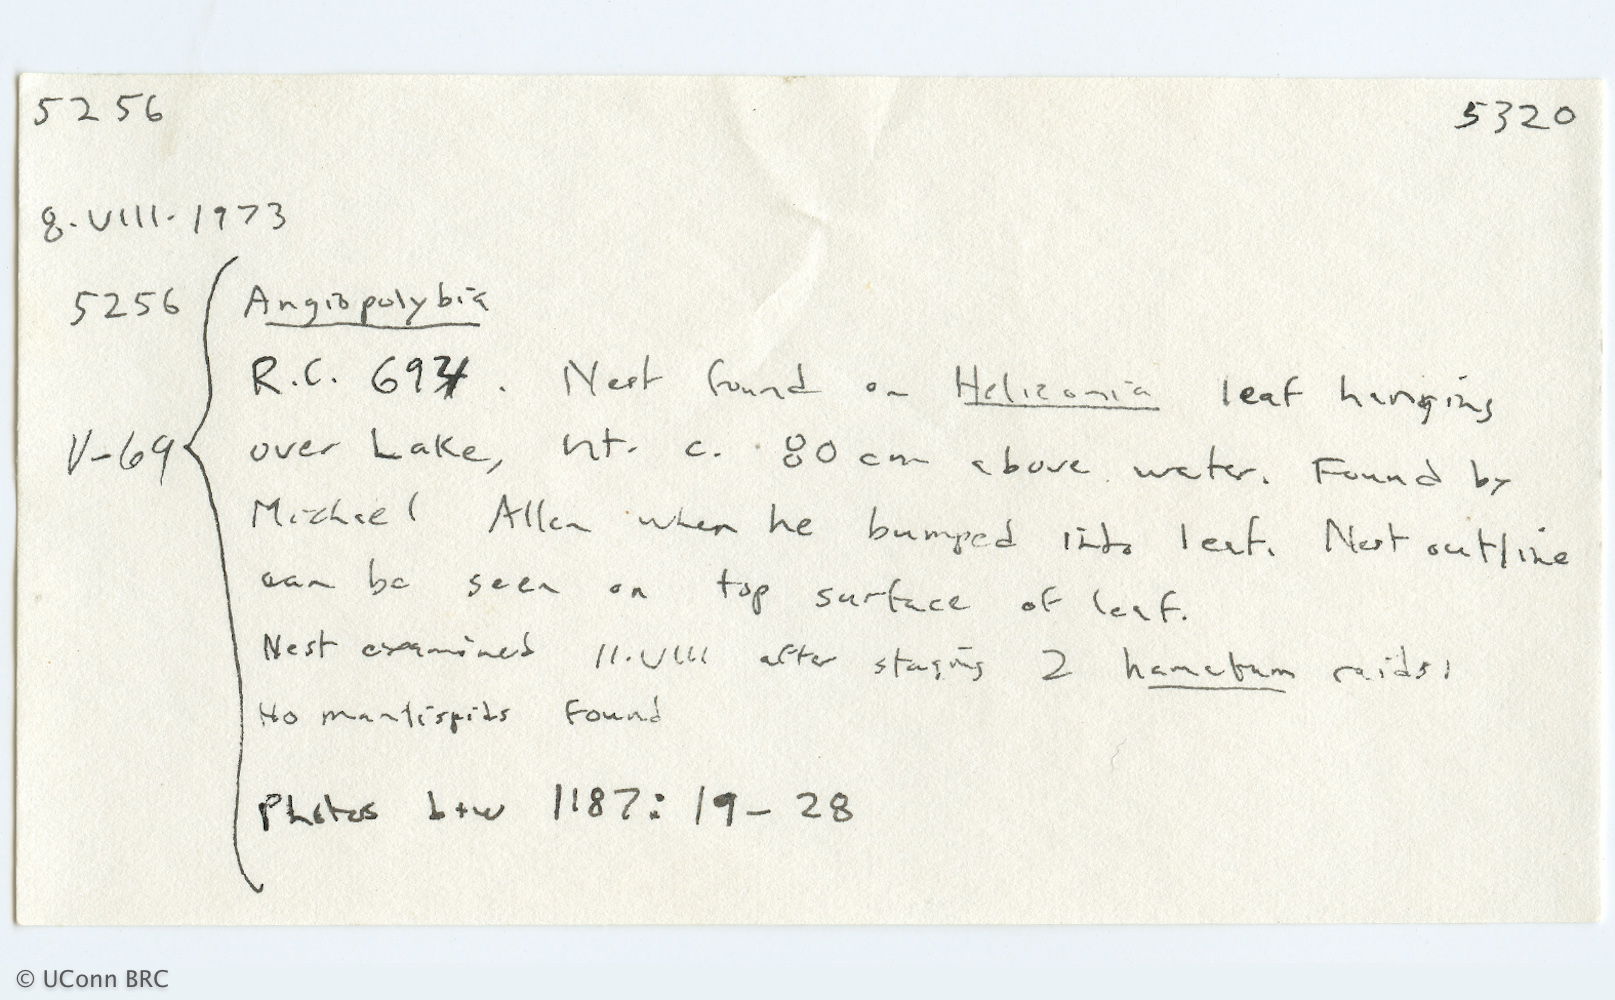 5256 5320
8.VIII.1973
5256 Angiopolybia
R.C. 694. Nest found on Heliconia leaf hanging
V-69 over Lake, ht. c. 80 cm above water. Found by
Michael Allen when he bumped into leaf. Nest outline
can be seen on top surface of leaf.
Nest examined 11.VIII after staging 2 hamatum raids:
No mantispids found
Photos b+w 1187: 19-28
© UConn BRC